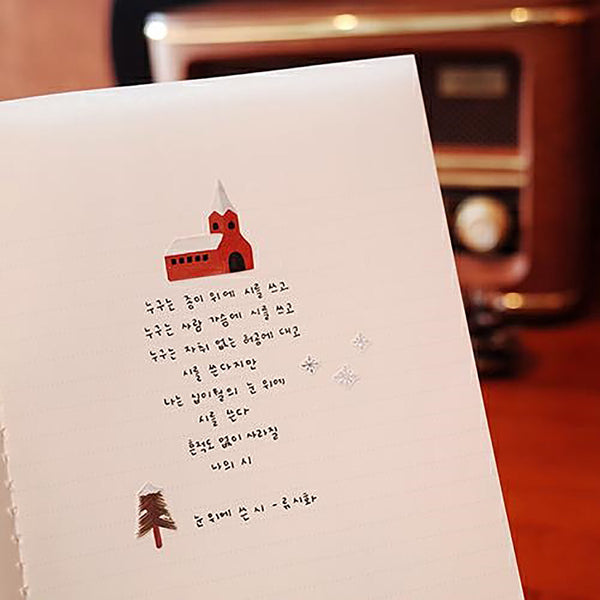 누구는 종이 위에 시를 쓰고
누구는 사람 가슴에 시를 쓰고
누구는 자취 없는 허공에 대고
시를 쓴다지만
나는 십이월의 눈 위에
시를 쓴다
흔적도 없이 사라질
나의 시
눈위에 쓴 시 - 류시화